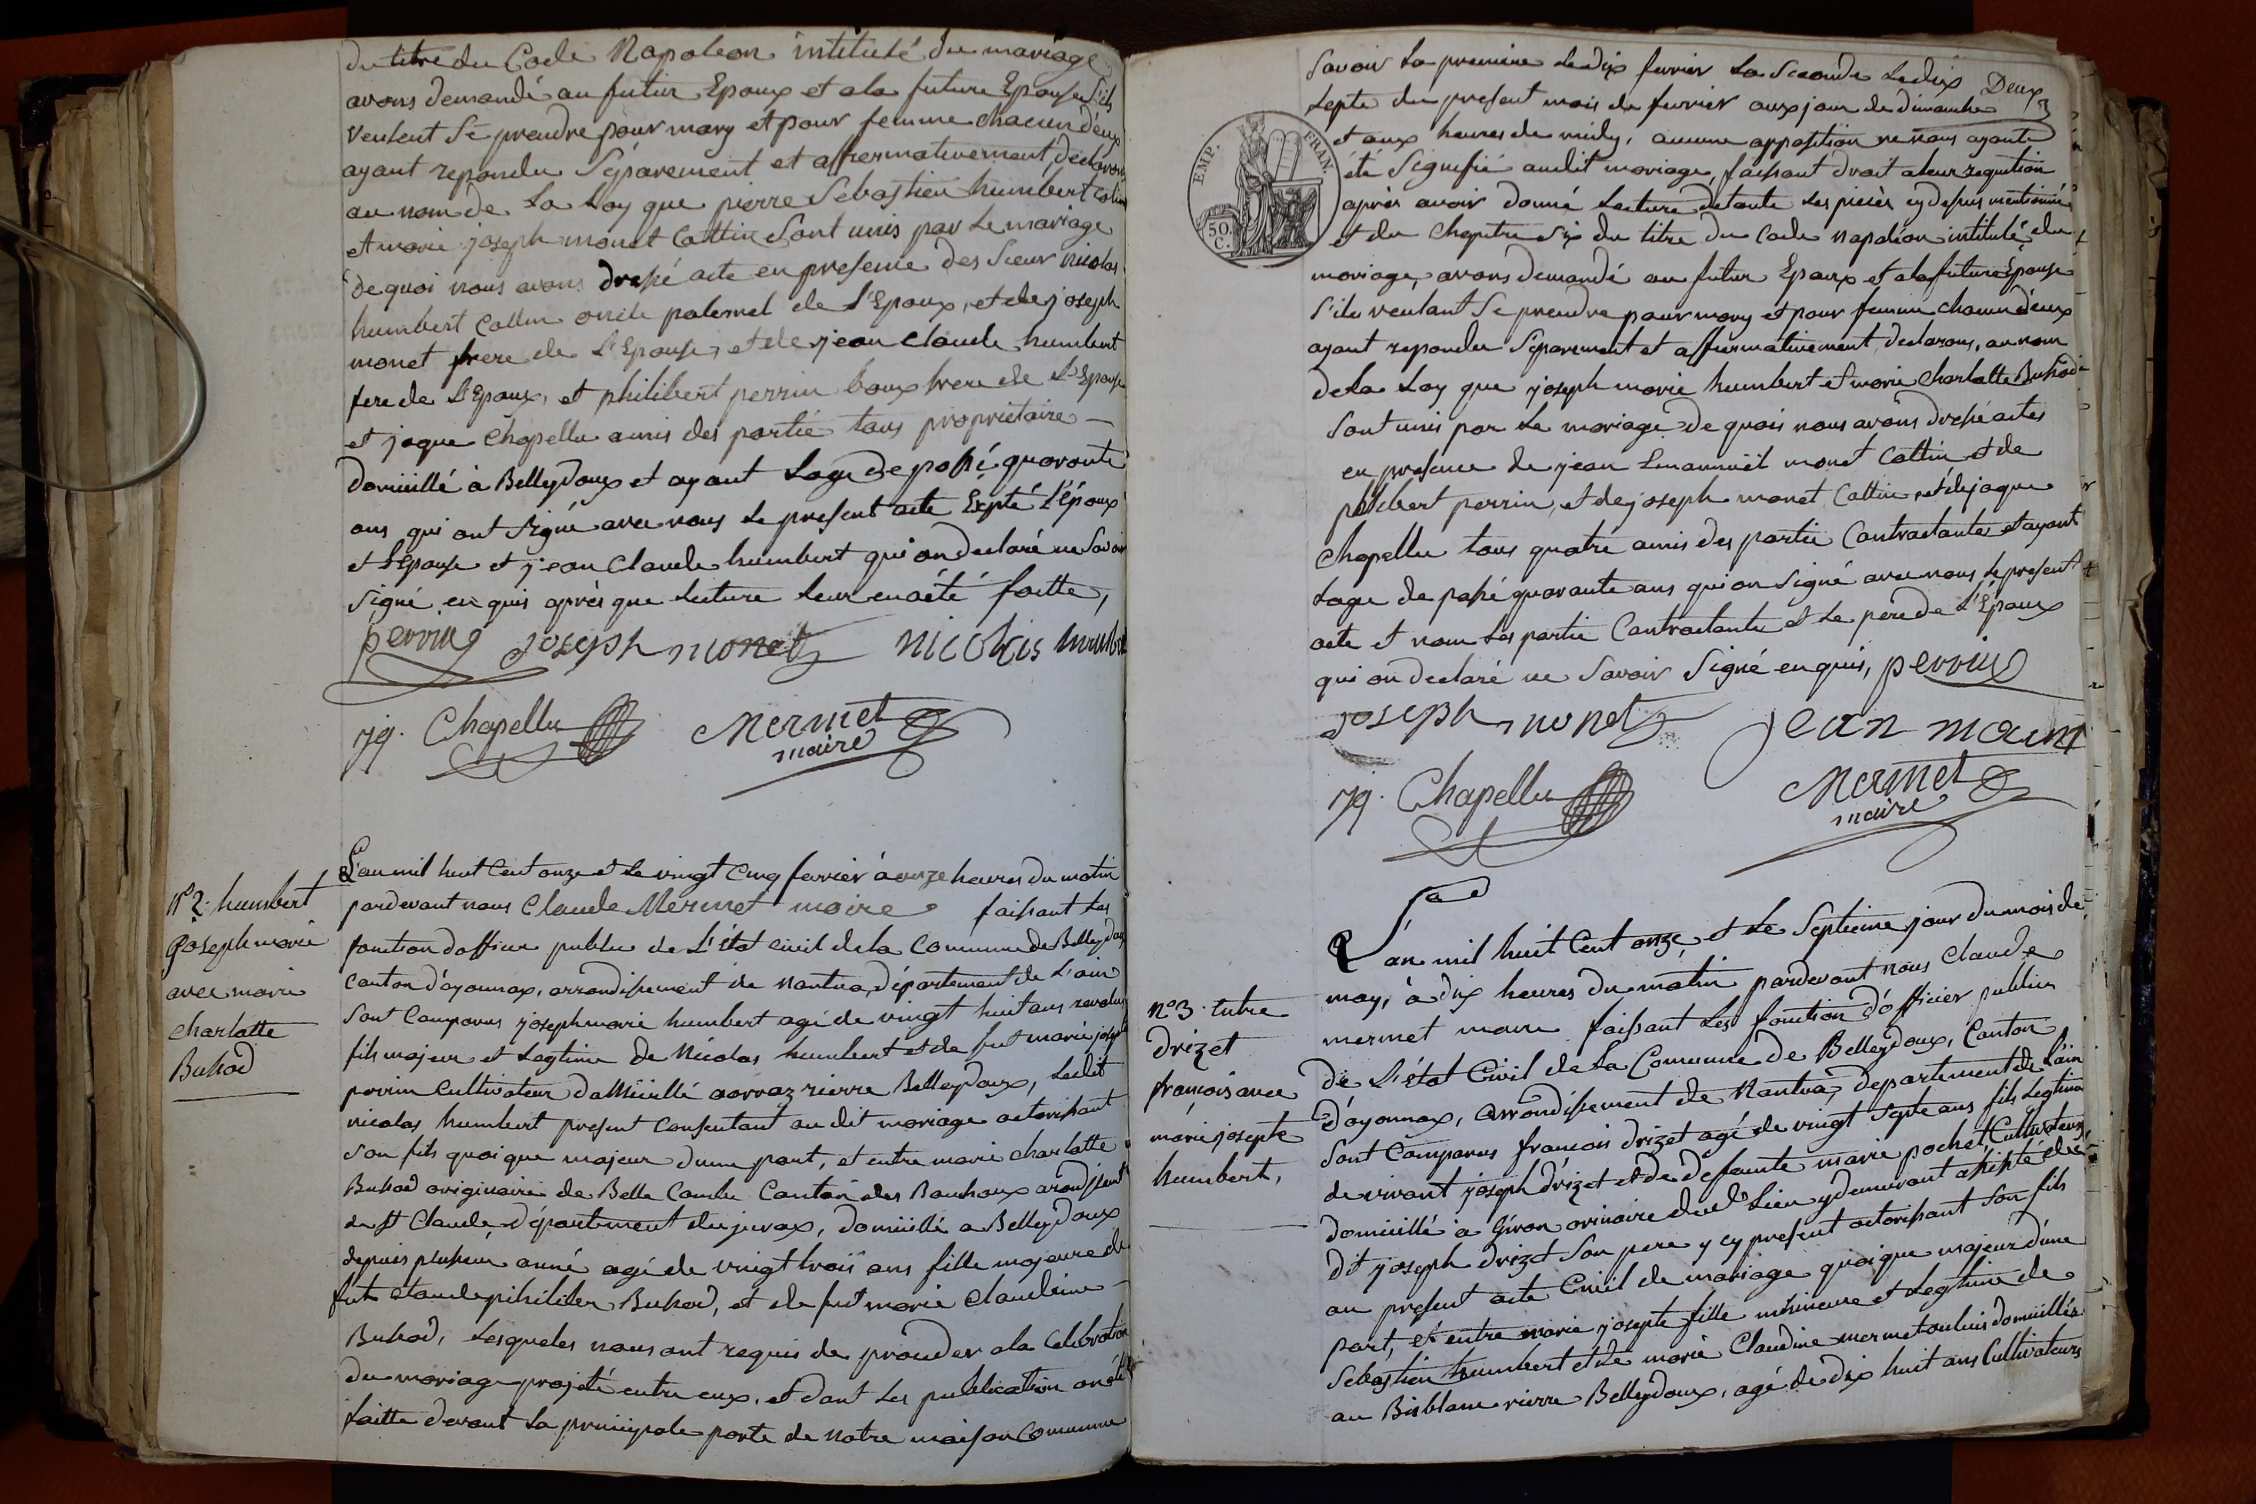 du titre du Code Napoleon intitulé du mariage
avons demandé au futur Epoux et ala future Epouse s'ils
veulent Se prendre pour mary et pour femme chacun d'eux
ayant repondu Séparement et affirmativement, declarons
au nom de La Loy que pierre Sebastien humbert Catin
et marie joseph monet Cattin Sont unis par Le mariage
de quoi nous avons dressé acte en presence des Sieur nicolas
humbert Cattin oncle paternel de L'Epoux, et de joseph
monet frere de L'Epouse, et de jean Claude humbert
fere de L'Epoux, et philibert perrin baux frere de L'Epouse
et jaque Chapellu amis des partié tous proprietaire
domicillé à Belleydoux et ayant Lage de passé quaronte
ans qui ont signé avec nous Le present acte Éxpté L'époux
et L'Epouse et jean Claude humbert qui on declaré ne Savoir
Signé en quis après que Lecture Leur en a été faitte,
perrin joseph monet nicolas humber
jq. Chapellu Mermet
maire
L'an mil huit Cent onze et Le vingt Cinq fevrier à onze heures du matin
pardevant nous Claude Mermet maire faissant Les
fonction d'officier public de L'état civil de la Commune de Belleydoux
Canton d'ayonnax, arrondissement de nantua, département de L'ain
Sont Comparus joseph marie humbert agé de vingt huit ans revolus
fils majeur et Legtime de Nicolas humbert et de fut marie joseph
perrin Cultivateur domicillé aorvaz rierre Belleydoux, Ledit
nicolas humbert present Consentant au dit mariage autorissant
Son fils quoique majeur d'une part, et entre marie charlatte
Buhod originaire de Belle Combe Canton des Bouhoux arondissent
de St Claude, département du juraux, domicillé a Belleydoux
depuis plusieur anné agé de vingt trois ans fille majeure de
fut Claude philiber Buhod, et de fut marie Claudine
Buhod, Lesqueles nous ont requis de proceder ala Celebration
du mariage projeté entre eux, et dont Les publication on été
faitte devant La principale porte de notre maison Commune
n° 2. humbert
joseph marie
avec marie
charlatte
Buhod
Deux
Savoir La premiere Le dix fevrier La Seconde Le dix
Septe du present mois de fevrier aux jour de dimanche
et aux heures de midy, aucune apposition ne nous ayante
été Signifié audit mariage, faissant droit aleur requsition
après avoir donné Lecture de toute Les pieces cy desus mentionnée
et du chapitre Six du titre du Code napoléon intitulé du
mariage, avons demandé au futur Epoux et ala future Epouse
s'ils veulant Se prendre pour mary et pour femme chacun d'eux
ayant repondu Séparement et affirmativement, declarons, au nom
de la Loy que joseph marie humbert et marie Charlatte Buhod
Sont unis par Le mariage De quois nous avons dressé actes
en presence de jean Emanuel monet Cattin et de
philibert perrin, et de joseph monet Cattin, et de jaque
Chapellu tous quatre amis des partie Contractantes et ayant
Lage de passé quarante ans qui on Signé avec nous Le present
acte et nom Les partie Contractante et Le père de L'Epoux
qui on declaré ne Savoir Signé enquis, perrin
joseph monet jean manu
jq. Chapellu Mermet
maire
EMP. FRAN.
50.
C.
L'an mil huit Cent onze, et Le Septieme jour du mois de
may, à dix heures du matin pardevant nous Claude
mermet maire faissant Les fonction d'officier publics
de L'état Civil de La Commune de Belleydoux, Canton
d'ayonnax, arrondissement de Nantua, departement de L'ain
Sont Comparus francois drizet agé de vingt Septe ans fils Legtime
de vivant joseph drizet et de defeunte marie pochet, Cultivateurs
domicillé à Giron orinaire dudt Lieu y demeurant assisté de
dit joseph drizet Son pere y cy present autorissant Son fils
au present acte Civil de mariage quoique majeur d'une
part, et entre marie josepte fille mineure et Legtime de
Sebastien humbert et de marie Claudine mermet oulin domicillés
au Bisblanc rierre Belleydoux, agé de dix huit ans Cultivateurs
n° 3. entre
drizet
françois avec
marie josepte
humbert,